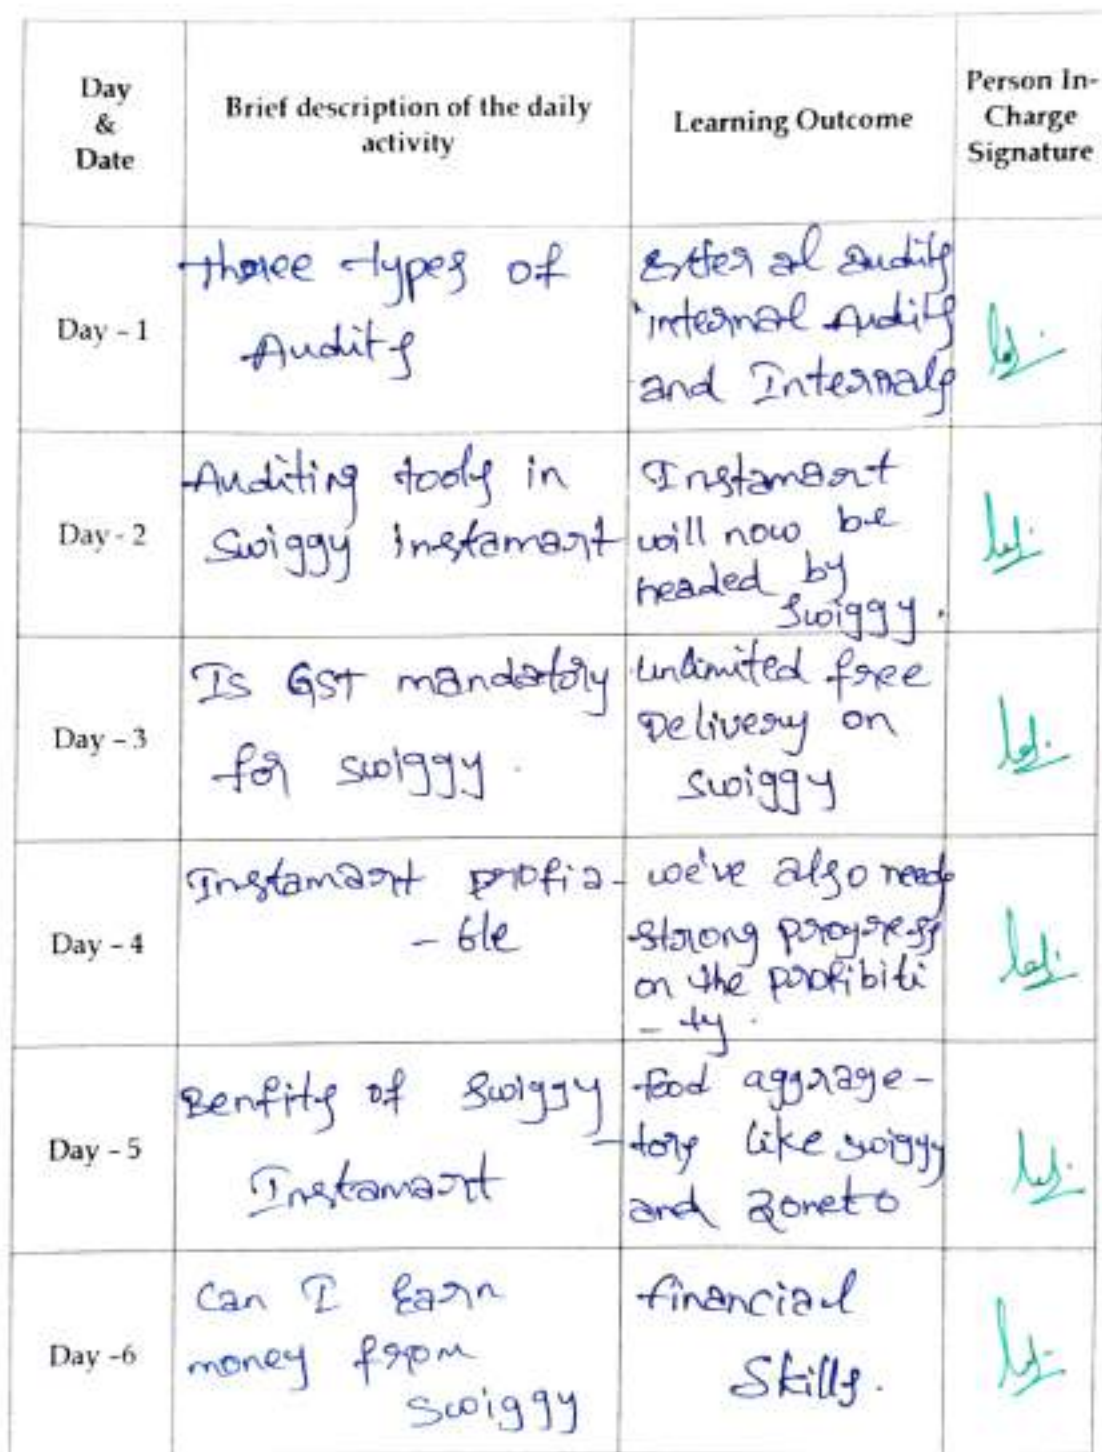 Day
&
Date
Brief description of the daily
activity
Learning Outcome
Person In-
Charge
Signature
Day - 1
three types of
Audits
Exter al Audits
internal Audits
and Internals
Day - 2
Auditing tools in
Swiggy instamart
Instamart
will now be
headed by
swiggy.
Day - 3
Is GST mandatory
for swiggy.
unlimited free
Delivery on
swiggy
Day - 4
Instamart profia-
- ble
we've also need
strong progress
on the profibiti
- ty.
Day - 5
Benfits of Swiggy
Instamart
food aggrage-
-tors like swiggy
and zoneto
Day -6
Can I Earn
money from
swiggy
financial
Skills.